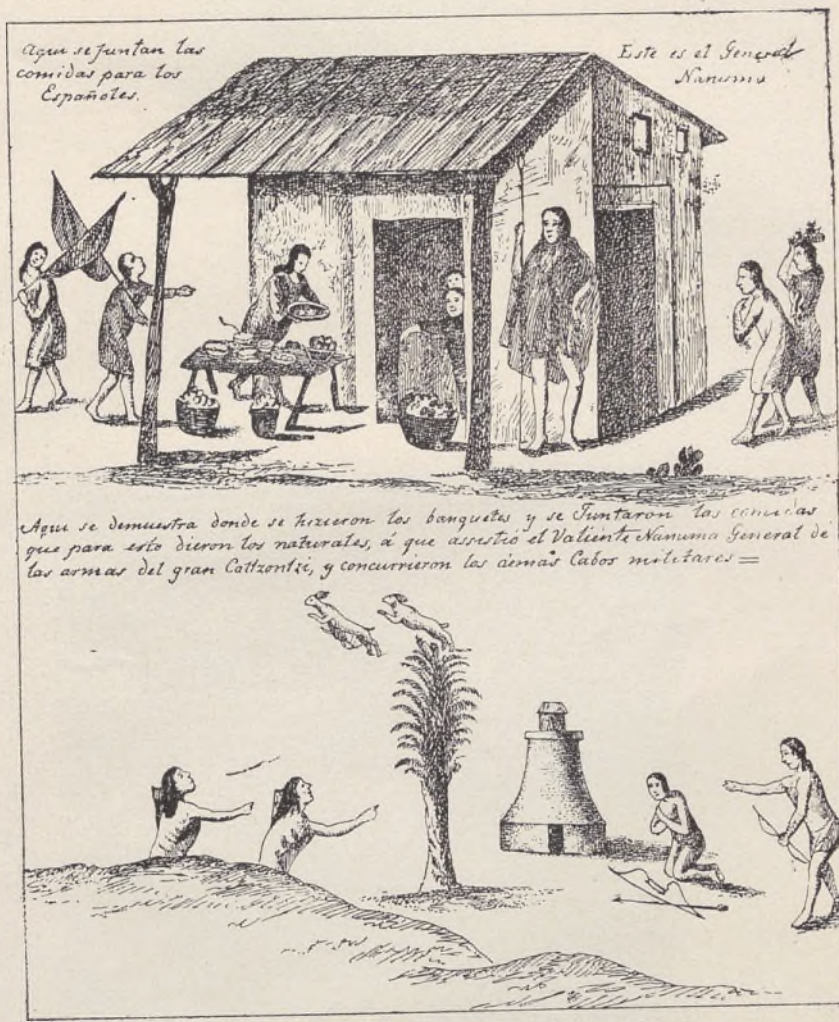 Aqui se Juntan las
comidas para los
Españoles.
Este es el General
Nanuma
Aqui se demuestra donde se hizieron los banquetes y se Juntaron las comidas
que para esto dieron los naturales, á que assistió el Valiente Nanuma General de
las armas del gran Caltzontzi, y concurrieron los demas Cabos militares =